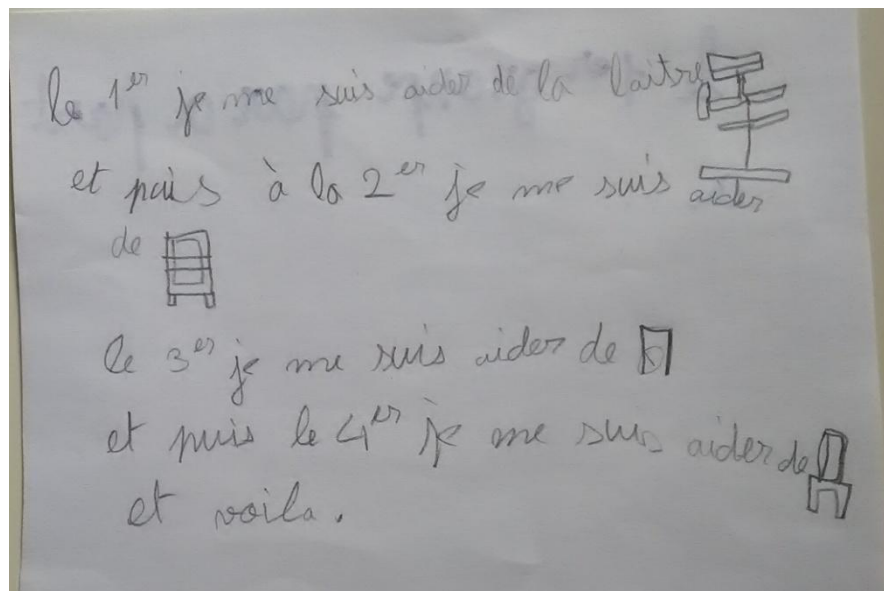 le 1er je me suis aider de la laitre
et puis à la 2er je me suis aider
de
le 3er je me suis aider de
et puis le 4er je me suis aider de
et voila.